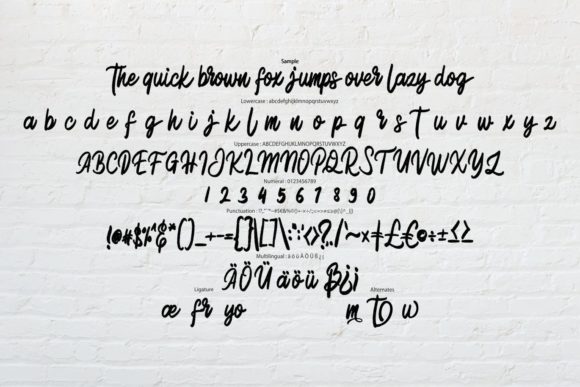 Sample
The quick brown fox jumps over lazy dog
Lowercase : abcdefghijklmnopqrstuvwxyz
a b c d e f g h i j k l m n o p q r s t u v w x y z
Uppercase : ABCDEFGHIJKLMNOPQRSTUVWXYZ
ABCDEFGHIJKLMNOPQRSTUVWXYZ
Numeral : 0123456789
1 2 3 4 5 6 7 8 9 0
Punctuation :
Multilingual : ä ö ü Ä Ö Ü ß ¿ ¡
ÄÖÜ äöü ß¿¡
Ligature
Alternates
æ fr yo
m to w